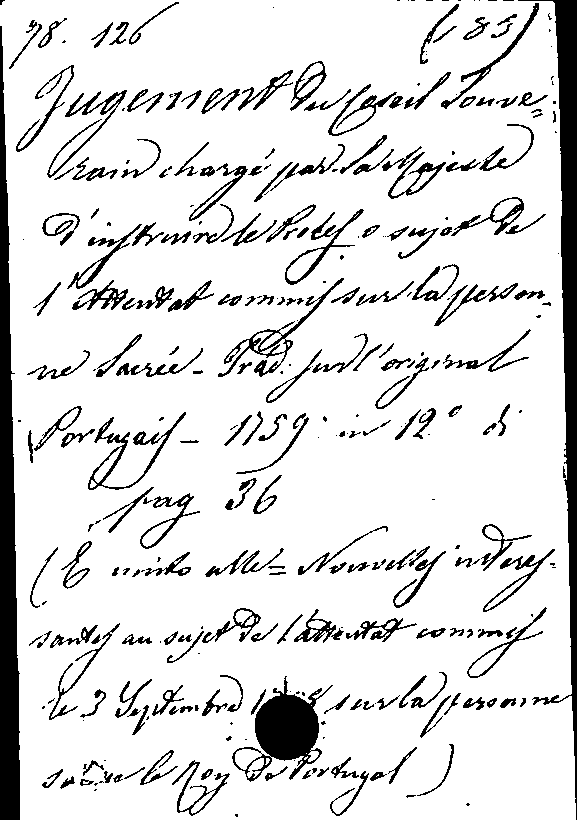 78. 126 (185)
Jugement du Coseil Souve=
rain chargé par Sa Majesté
d'instruire le Procès o sujet de
l'Attentat commis sur la person-
ne Sacrée - Trad. sur l'original
Portugais - 1759. in 12° di
pag 36
(E unito alle = Nouvelles interes-
santes au sujet de l'attentat commis
le 3 Septembre sur la personne
le Roy de Portugal)